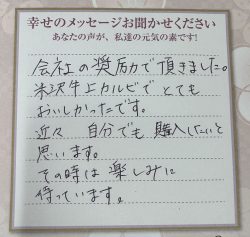 幸せのメッセージお聞かせください
あなたの声が、私達の元気の素です!
会社の奨励で頂きました。
米沢牛上カルビでとても
おいしかったです。
近々 自分でも購入したいと
思います。
その時は楽しみに
待っています。